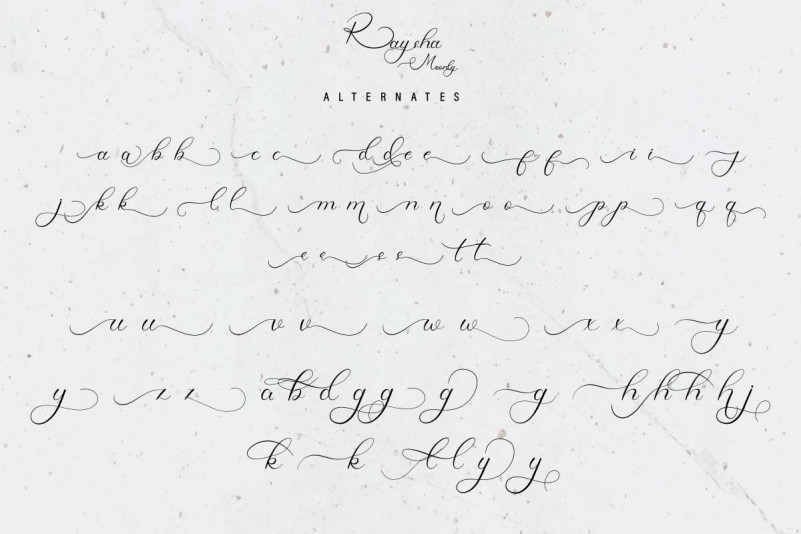 Raysha
Moonly
ALTERNATES
a a b b c c d d e e f f i i j
j k k l l m m n n o o p p q q
e e s s t t
u u v v w w x x y
y z z a b d g g g g h h h h j
k k l l y y